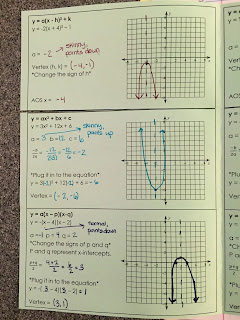 y = a(x - h)² + k
y = -2(x + 4)² - 1
a = -2 → skinny, points down
Vertex (h, k) = (-4, -1)
*Change the sign of h*
AOS x = -4
y = ax² + bx + c
y = 3x² + 12x + 6
a = 3 b = 12 c = 6
skinny, points up
-b/2a = -12/2(3) = -12/6 = -2
*Plug it in to the equation*
y = 3(-2)² + 12(-2) + 6 = -6
Vertex = (-2, -6)
y = a(x - p)(x - q)
y = -(x - 4)(x - 2)
a = -1 p = 4 q = 2
normal, points down
*Change the signs of p and q*
P and q represent x-intercepts.
p+q/2 = 4+2/2 = 6/2 = 3
*Plug it in to the equation*
y = -(3-4)(3-2) = 1
Vertex = (3, 1)